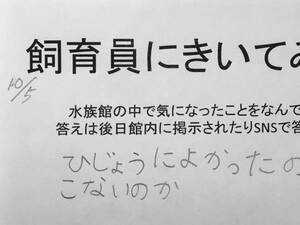 10/5
飼育員にきいてみ
水族館の中で気になったことをなんで
答えは後日館内に掲示されたりSNSで答
ひじょうによかったの
こないのか